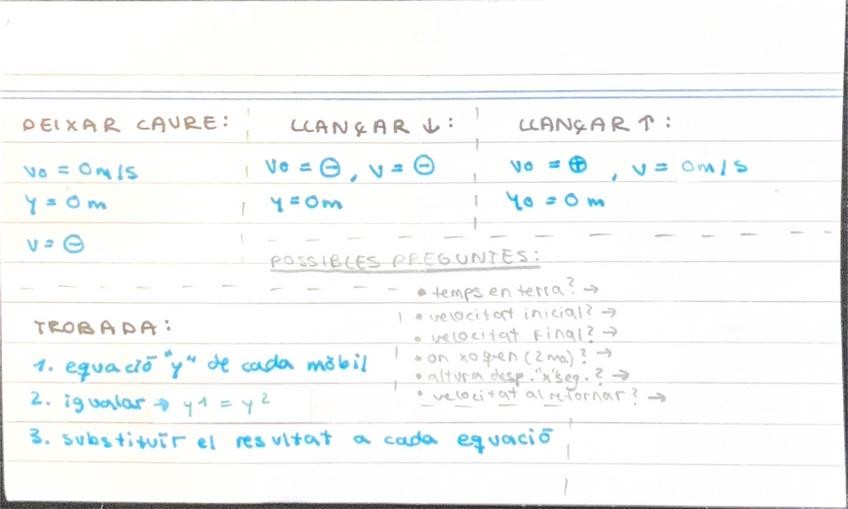 DEIXAR CAURE:
v0 = 0m/s
y = 0 m
v = ⊖
LLANÇAR ↓:
v0 = ⊖, v = ⊖
y = 0m
LLANÇAR ↑:
v0 = ⊕, v = 0m/s
y0 = 0 m
POSSIBLES PREGUNTES:
• temps en terra? →
• velocitat inicial? →
• velocitat final? →
• on xoquen (2 mo.)? →
• altura desp. "x" seg.? →
• velocitat al retornar? →
TROBADA:
1. equació "y" de cada mòbil
2. igualar → y1 = y2
3. substituïr el resultat a cada equació